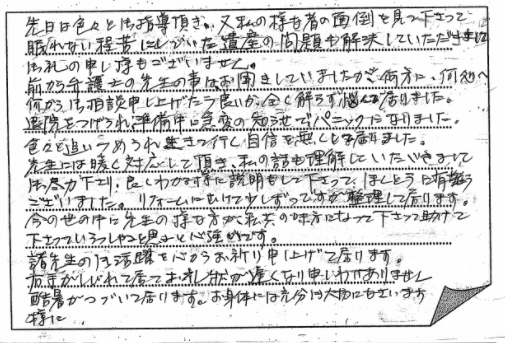 先日は色々と御指導頂き、又私の様な者の面倒を見て下さって
眠れない程苦にしていた遺産の問題も解決していただきまして
御礼の申し様もございません。
前から弁護士の先生の事はお聞きしていましたが、何方に、何処へ
何から御相談申し上げたら良いか、全く解らず悩んで居りました。
退院をつげられ、準備中に急変の知らせでパニックになりました。
色々と追いつめられ、生きて行く自信を無くして居りました。
先生には暖く対応して頂き、私の話も理解していただきまして
御尽力下さり、良くわかる様に説明もして下さって、ほんとうに有難う
ございました。リフォームにむけて少しずつですが整理して居ります。
今の世の中に先生の様な方が私共の味方になって下さって助けて
下さっていらっしゃると思うと心強いです。
諸先生の御活躍を心からお祈り申し上げて居ります。
右手がしびれて居てお礼状が遅くなり申しわけありません
酷暑がつづいて居ります。お身体には充分御大切に
様に